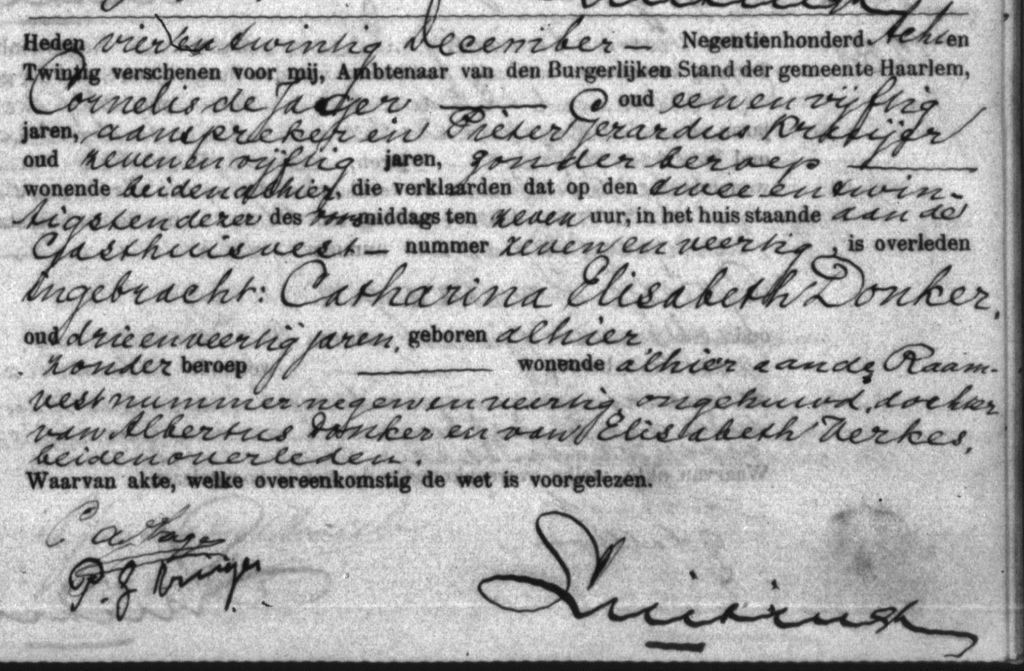 Heden vier en twintig December — Negentienhonderd Achten
Twintig verschenen voor mij, Ambtenaar van den Burgerlijken Stand der gemeente Haarlem,
Cornelis de Jager — oud een en vijftig
jaren, aanspreker en Pieter Gerardus Kruijer
oud zeven en vijftig jaren, zonder beroep —
wonende beiden alhier, die verklaarden dat op den twee en twin-
tigsten dezer des voormiddags ten zeven uur, in het huis staande aan de
Gasthuisvest — nummer zeven en veertig, is overleden
ingebracht: Catharina Elisabeth Donker,
oud drie en veertig jaren, geboren alhier
zonder beroep — wonende alhier aan de Raam-
vest nummer negen en veertig, ongehuwd, dochter
van Albertus Donker en van Elisabeth Verkes,
beiden overleden.
Waarvan akte, welke overeenkomstig de wet is voorgelezen.
C de Jager
P. G Kruijer